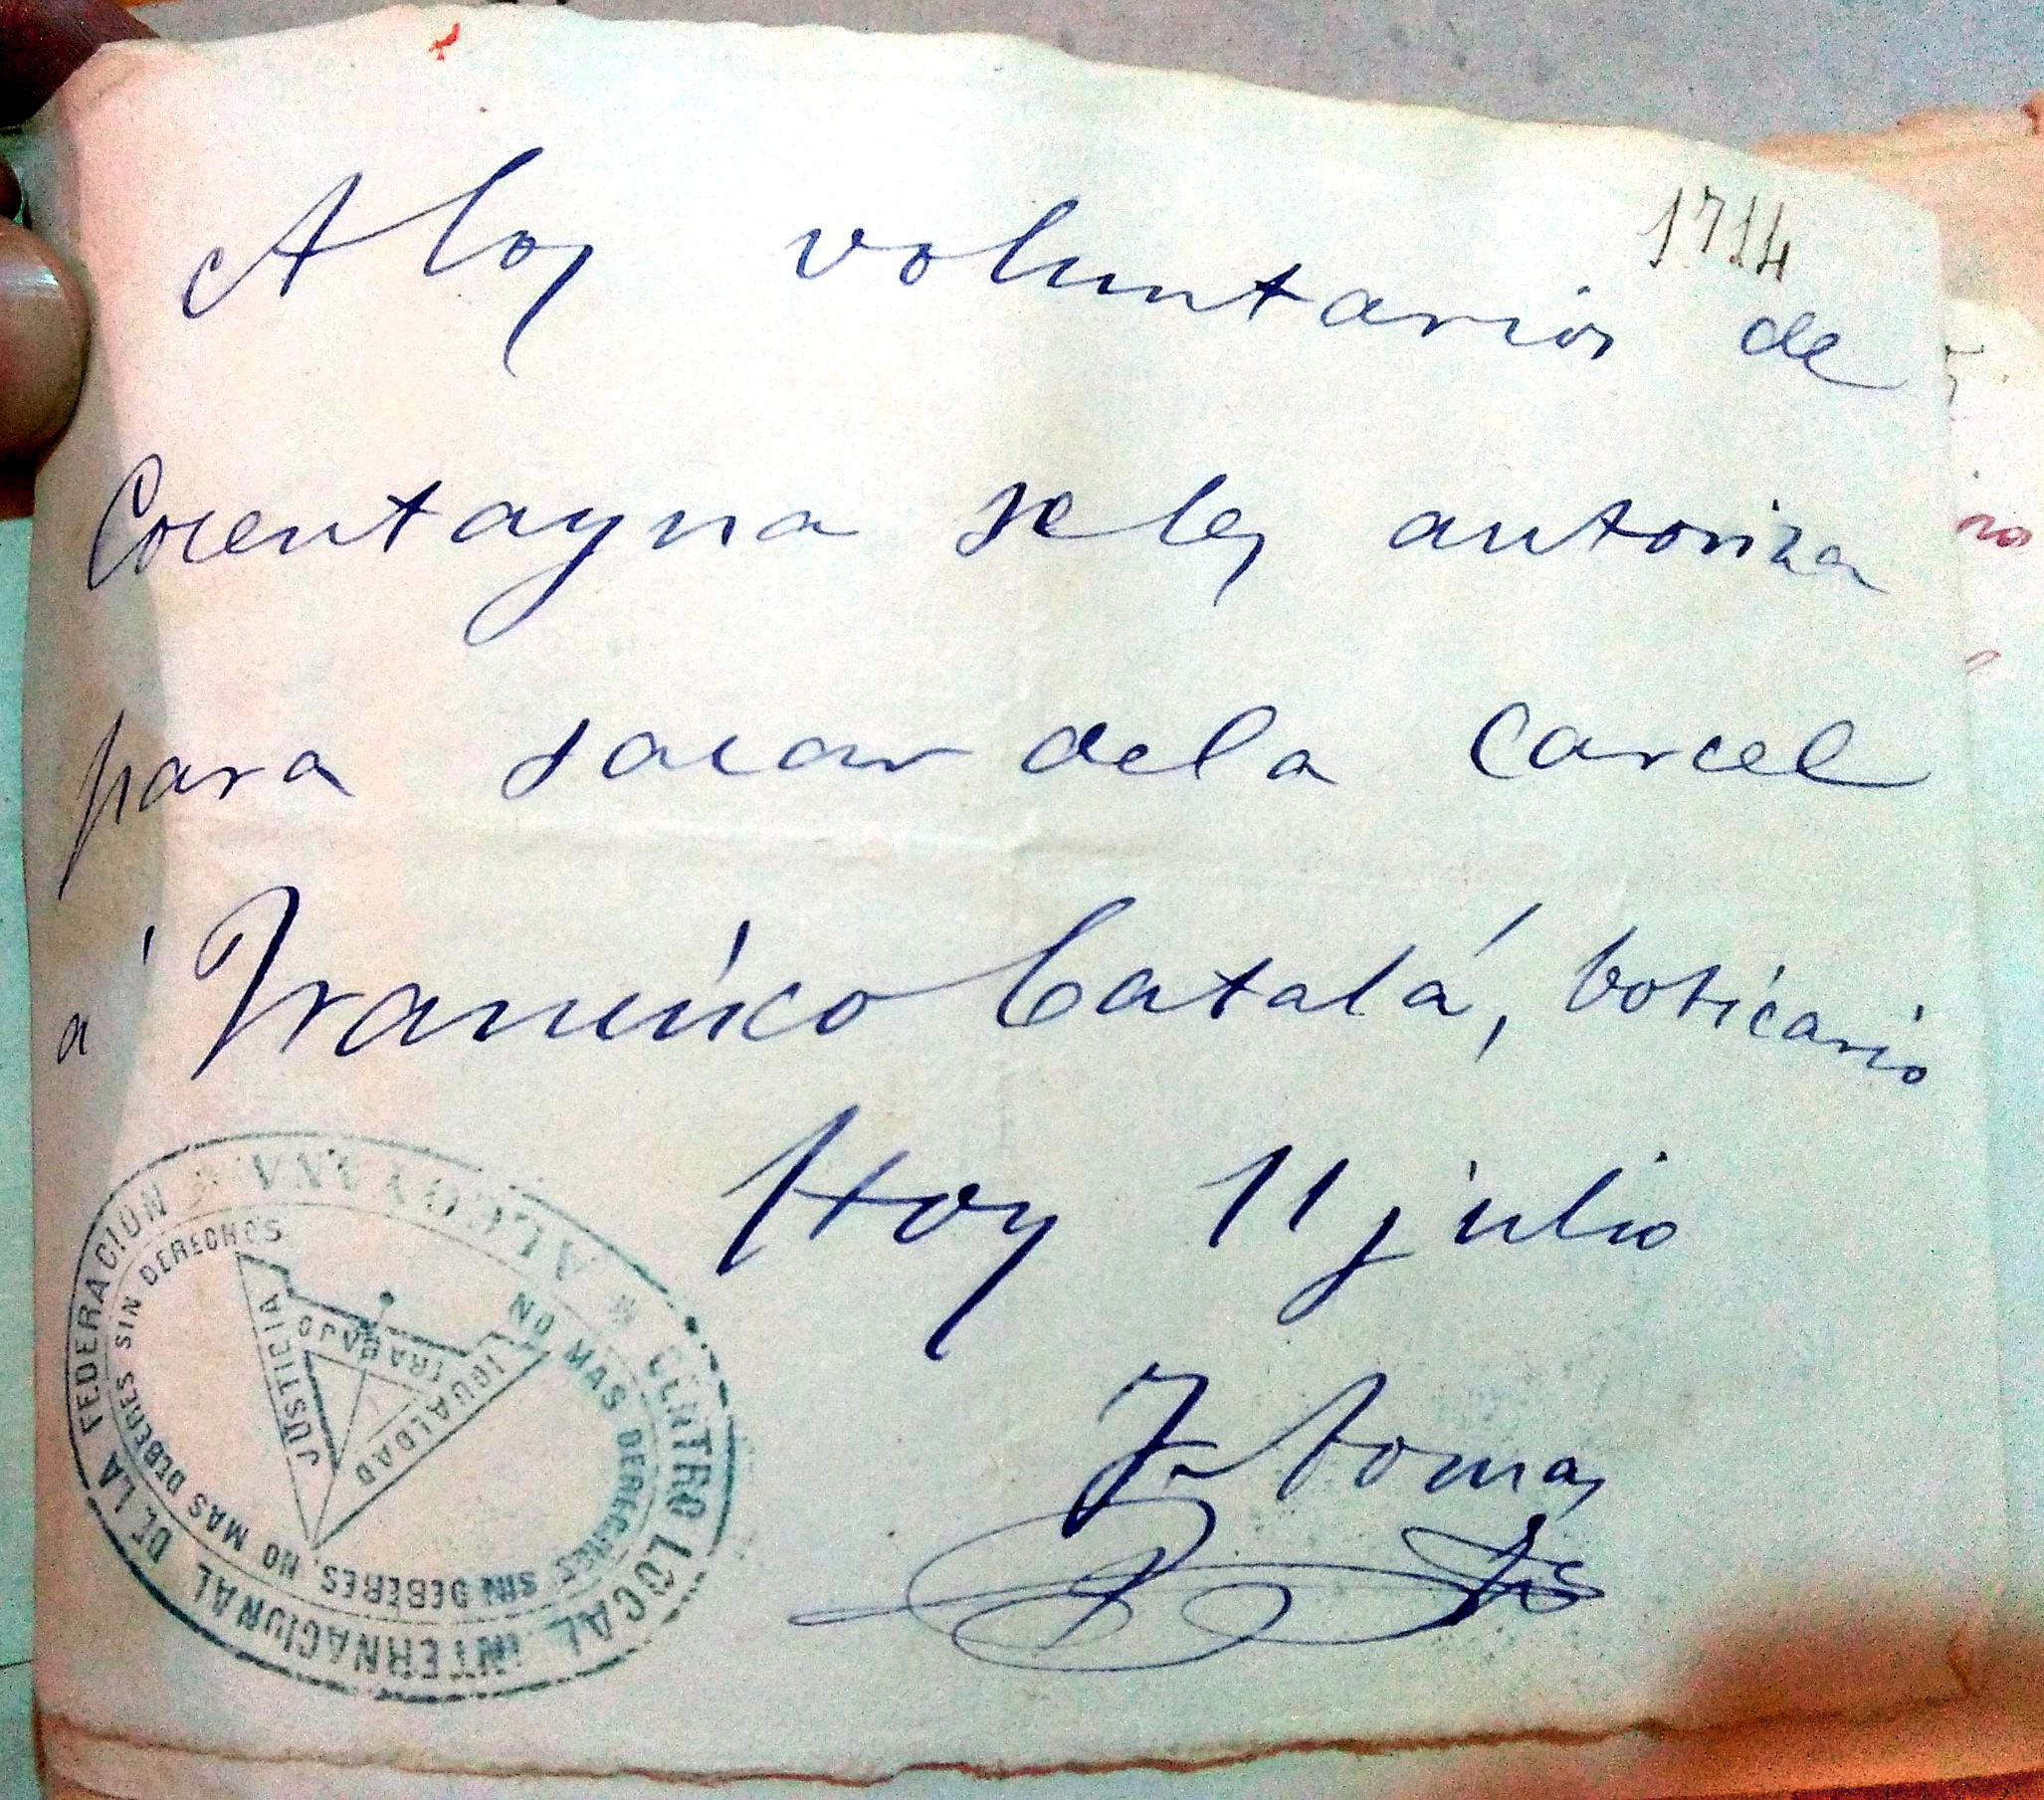 1714
A los voluntarios de
Cocentayna se les autoriza
para sacar dela carcel
á Francisco Catalá, boticario
Hoy 11 julio
Tomas
CENTRO LOCAL INTERNACIONAL DE LA FEDERACION * ALCOYANA *
NO MAS DERECHOS SIN DEBERES, NO MAS DEBERES SIN DERECHOS
JUSTICIA
TRABAJO
IGUALDAD